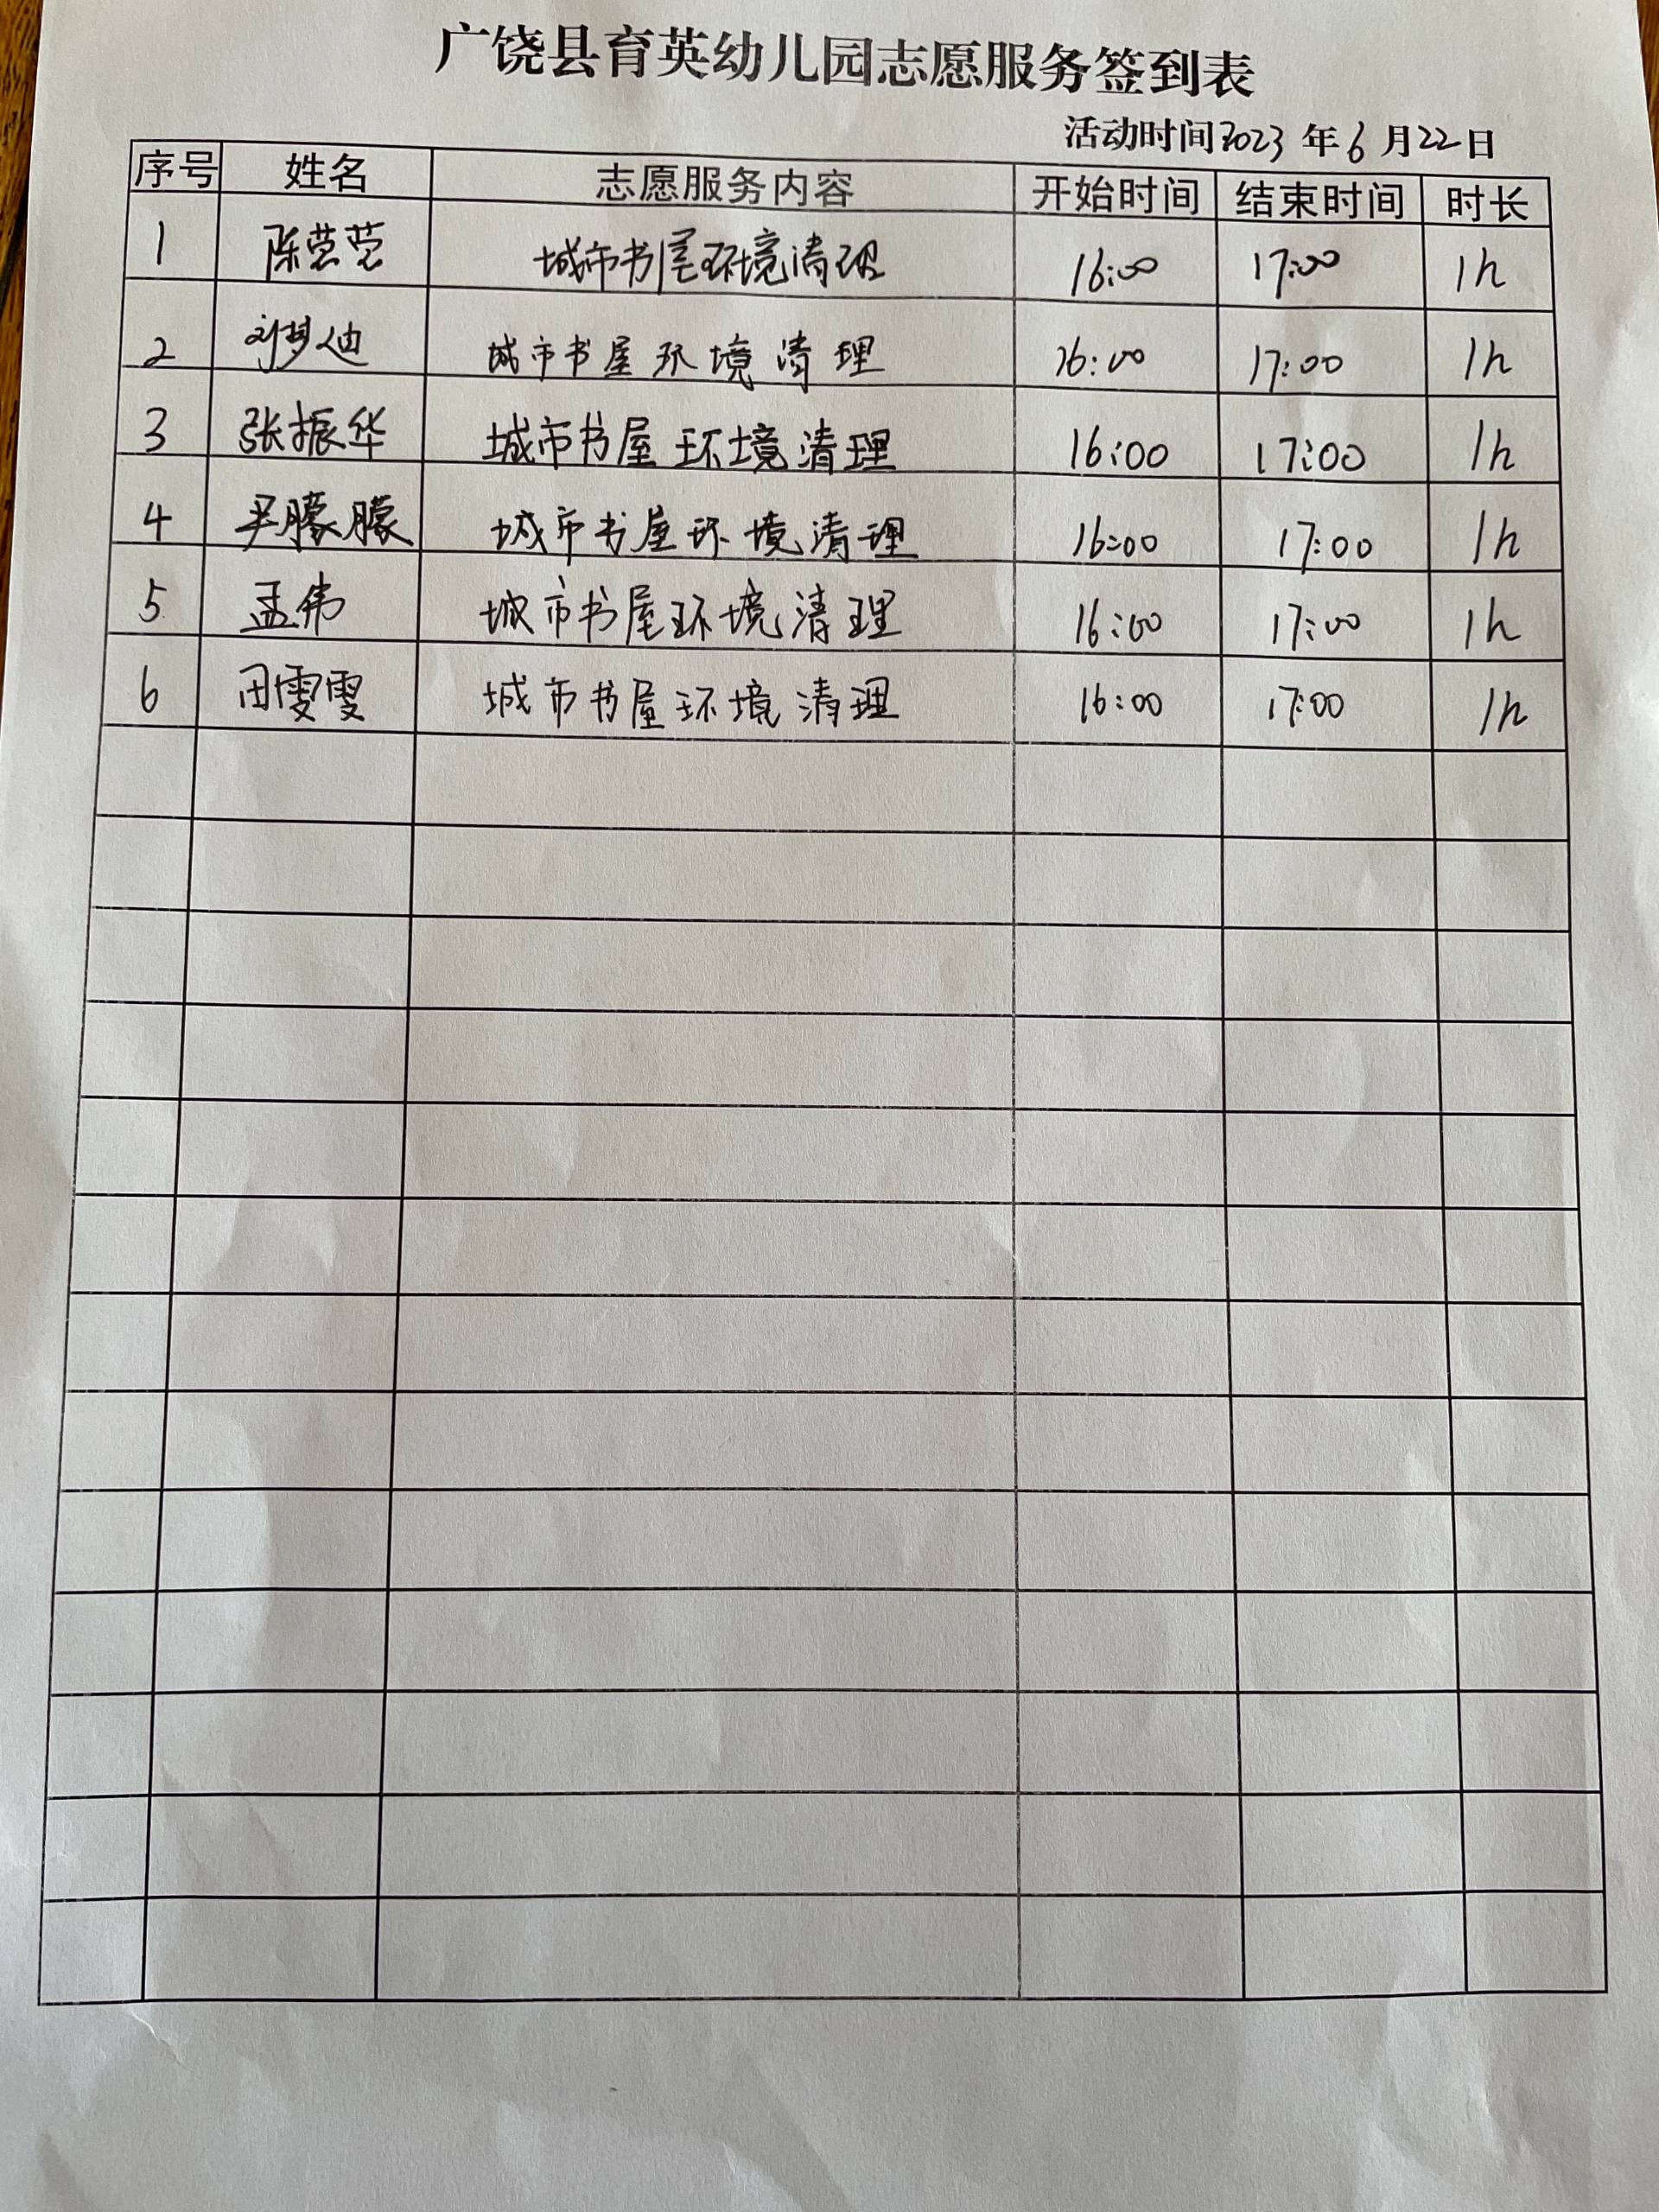 广饶县育英幼儿园志愿服务签到表
活动时间2023 年 6 月22日
序号 姓名 志愿服务内容 开始时间 结束时间 时长
1 陈芸芸 城市书屋环境清理 16:00 17:00 1h
2 刘梦迪 城市书屋环境清理 16:00 17:00 1h
3 张振华 城市书屋环境清理 16:00 17:00 1h
4 尹朦朦 城市书屋环境清理 16:00 17:00 1h
5 孟伟 城市书屋环境清理 16:00 17:00 1h
6 田雯雯 城市书屋环境清理 16:00 17:00 1h